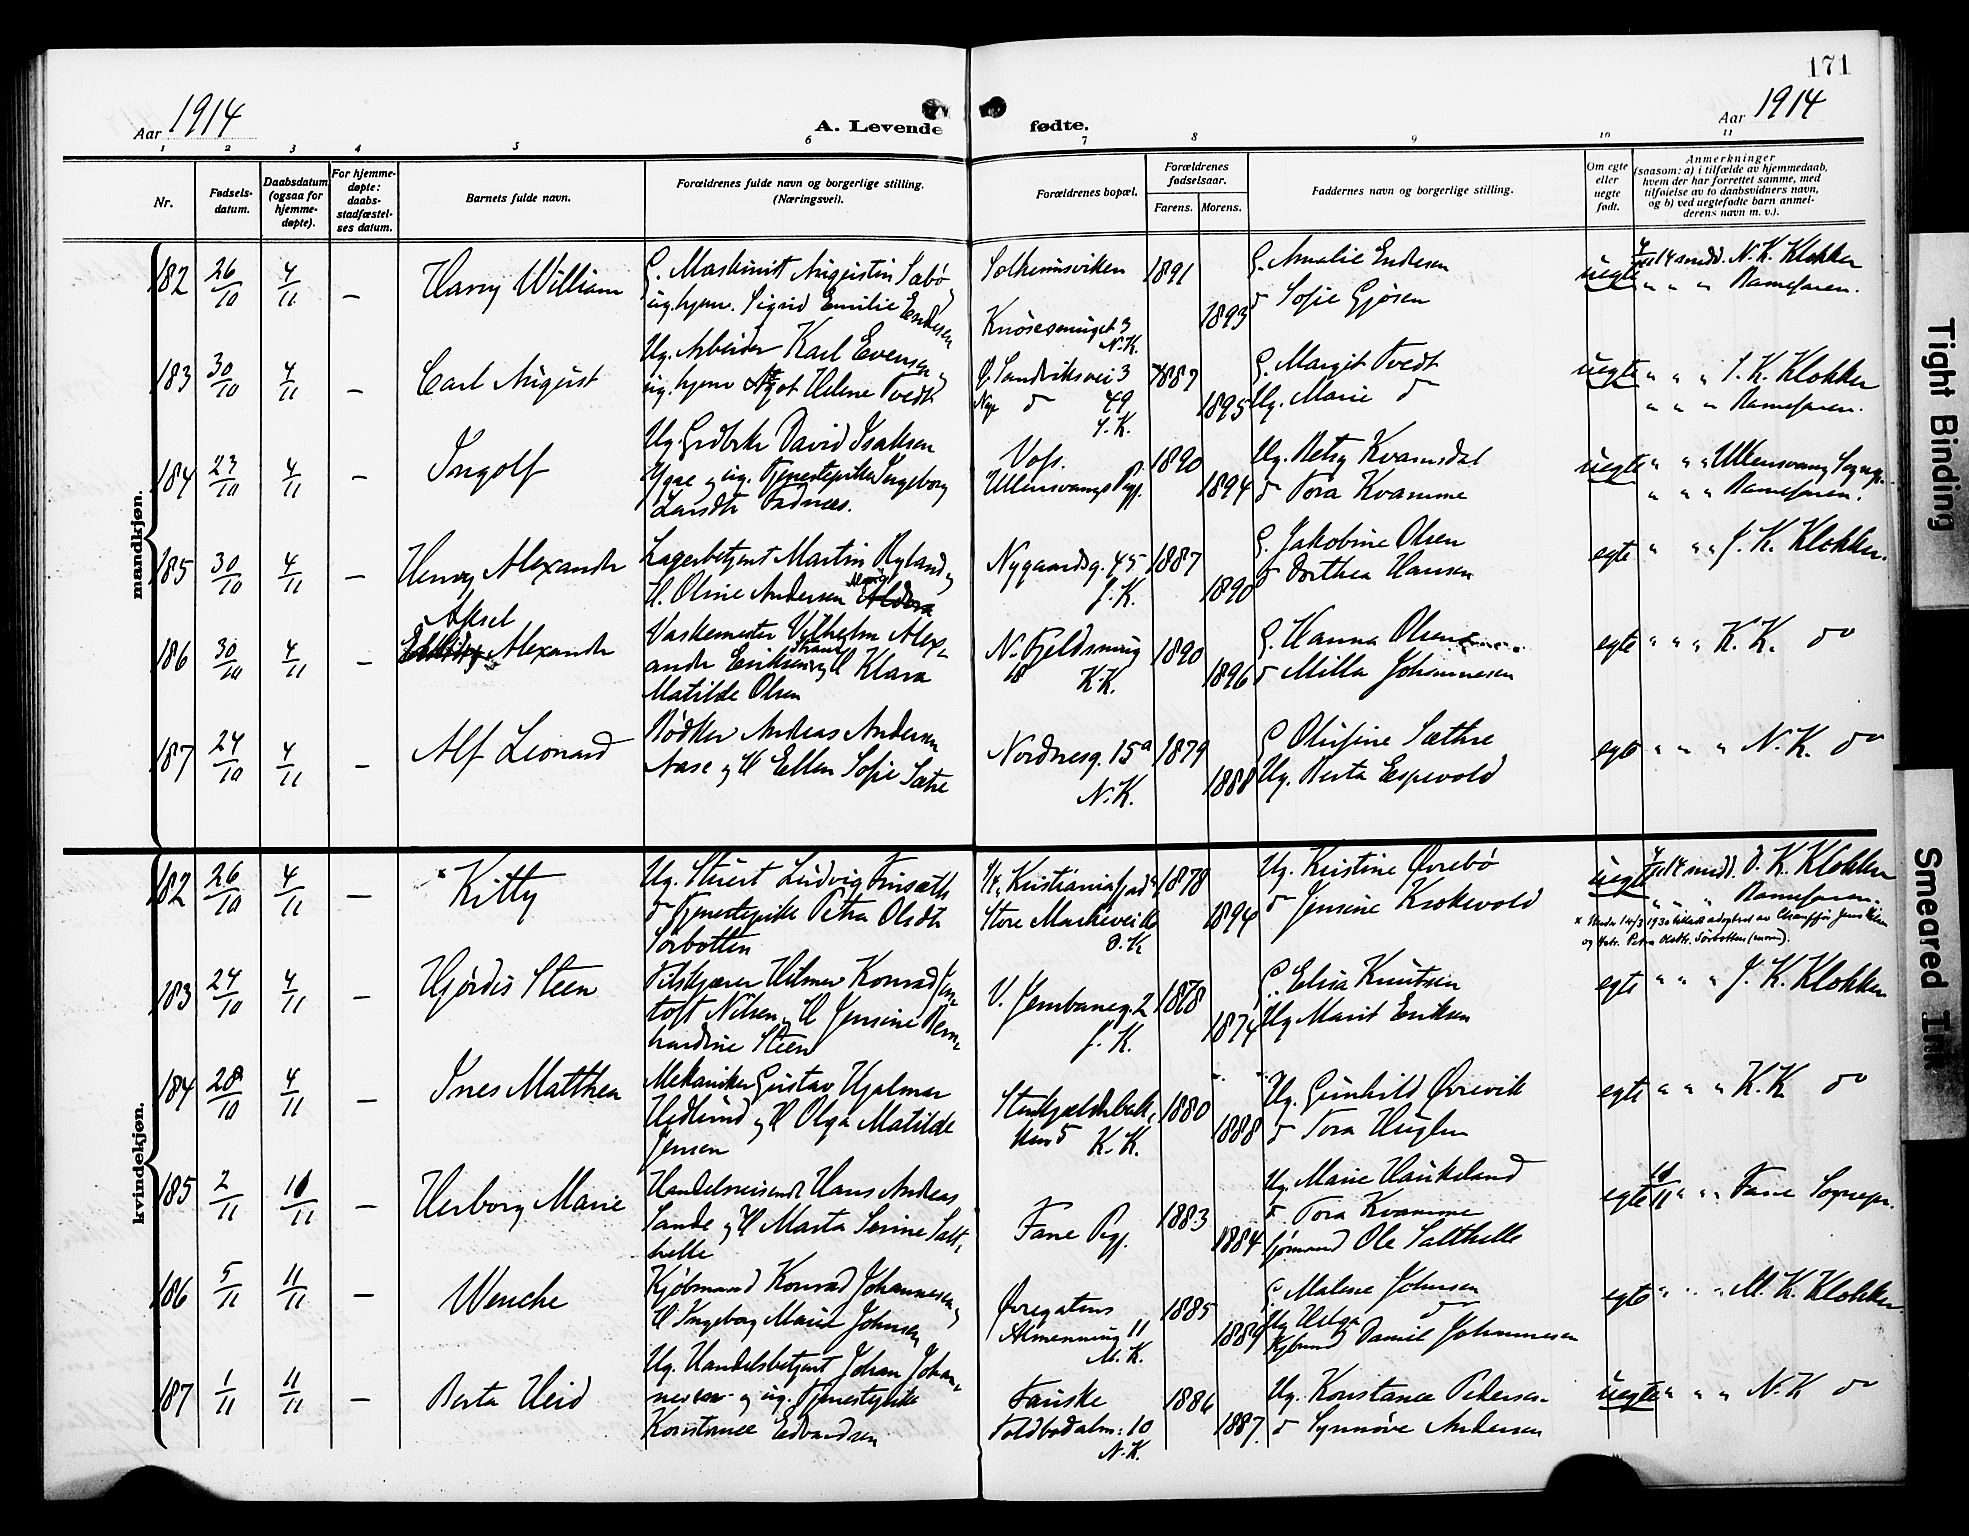 171
Aar 1914
A. Levende fødte.
Aar 1914
1 2 3 4 5 6 7 8 9 10 11
Nr.
Fødsels-
datum.
Daabsdatum
(ogsaa for
hjemme-
døpte).
For hjemme-
døpte:
daabs-
stadfæstel-
ses datum.
Barnets fulde navn.
Forældrenes fulde navn og borgerlige stilling.
(Næringsvei).
Forældrenes bopæl.
Forældrenes
fødselsaar.
Farens. Morens.
Faddernes navn og borgerlige stilling.
Om egte
eller
uegte
født.
Anmerkninger
(saasom: a) i tilfælde av hjemmedaab,
hvem der har forrettet samme, med
tilføielse av to daabsvidners navn,
og b) ved uegtefødte barn anmel-
derens navn m. v.).
mandkjøn.
182 26/10 4/11 — Harry William
G. Maskinist Augustin Sabø
ug. hjem. Sigrid Emilie Endesen
Solheimsviken
Knøsesmuget 3
N.K.
1891 1893
G. Amalie Endesen
d Sofie Gjøsen
uegte
14 medd. N. K. Klokker
" " " Barnefaren.
183 30/10 4/11 — Carl August
Ug. Arbeider Karl Evensen
ug. hjem Helene Tvedt
Sandviksvei 3
49
1887 1895
G. Margit Tvedt
Ug. Marie d
uegte
" " " S. K. Klokker
" " " Barnefaren.
184 23/10 4/11 — Ingolf
Ug. Grdbr David Isaksen
Ygre og ug. Tjenestepike Ingeborg
Larsdtr Fadnæs.
Voss.
Ullensvangs Pgj.
1890 1894
Ug. Betsy Kvamsdal
d Tora Kvamme
uegte
" " " Ullensvang Sognepr.
" " " Barnefaren.
185 30/10 4/11 — Henry Alexander
Lagerbetjent Martin Ryland og
H. Oline Andersen
Nygaardsg. 45
J. K.
1887 1890
G. Jakobine Olsen
d Dorthea Hansen
egte
" " " J. K. Klokker.
186 30/10 4/11 — Aksel
Alexander
Vaskemester Vilhelm Alex-
ander Eriksen og H Klara
Matilde Olsen
N. Fjeldsmug
18 K.K.
1890 1896
G. Hanna Olsen
d Milla Johannesen
egte
" " " K. K. do
187 24/10 4/11 — Alf Leonard
Bødker Andreas Andersen
Næse og H Ellen Sofie Sætre
Nordnesg. 15a
N. K.
1879 1888
G Olufine Sæthre
Ug. Berta Espevold
egte
" " " N. K. do
kvindekjøn.
182 26/10 4/11 — × Kitty
Ug. Stuert Ludvig Trusæth
d Tjenestepike Petra Olsdtr
Sørbotten
Kristianiafjord
Store Markevei
D. K
1878 1894
Ug. Kristine Øvrebø
d Jensine Krokevold
uegte
14 medd. D. K. Klokker
" " " Barnefaren.
× 1930 adoptert av Chauffør Jens
og Petra Olsdtr. Sørbotten (moren).
183 24/10 4/11 — Hjørdis Steen
Filskjærer Hilmer Konrad Jen-
toft Nilsen og H Jensine Bern-
hardine Steen
V. Jernbaneg. 2
J. K.
1878 1874
G. Elisa Knutsen
Ug Marit Eriksen
egte
" " " J. K. Klokker
184 28/10 4/11 — Ines Matthea
Mekaniker Gustav Hjalmar
Hedlund og H Olga Matilde
Jensen
Stenkjælderbak-
ken 5 K. K.
1880 1888
Ug. Gunhild Øvrevik
d Tora Huglen
egte
" " " K. K. do
185 2/11 10/11 — Herborg Marie
Handelsreisende Hans Andreas
Sande og H Marta Serine Salt-
helle
Fane Pgj.
1883 1884
Ug. Marie Haukeland
d. Tora Kvamme
Sjømand Ole Salthelle
egte
10/11 " " Fane Sognepr.
186 5/11 11/11 — Wenche
Kjøbmand Konrad Johannesen og
H Ingeborg Marie Johnsen
Øvregatens
Almenning 11
M. K.
1885 1889
G. Malene Johnsen
Ug Helga d
Kjøbmd Daniel Johannesen
egte
" " " M. K. Klokker
187 1/11 11/11 — Berta Heid
Ug. Handelsbetjent Johan Johan-
nessen og ug. Tjenestepike
Konstance Edvardsen
Fauske
Toldbodalm: 10
N. K.
1886 1887.
Ug. Konstance Pedersen
d Synnøve Andersen
uegte
" " " N. K do
Tight Binding
Smeared Ink